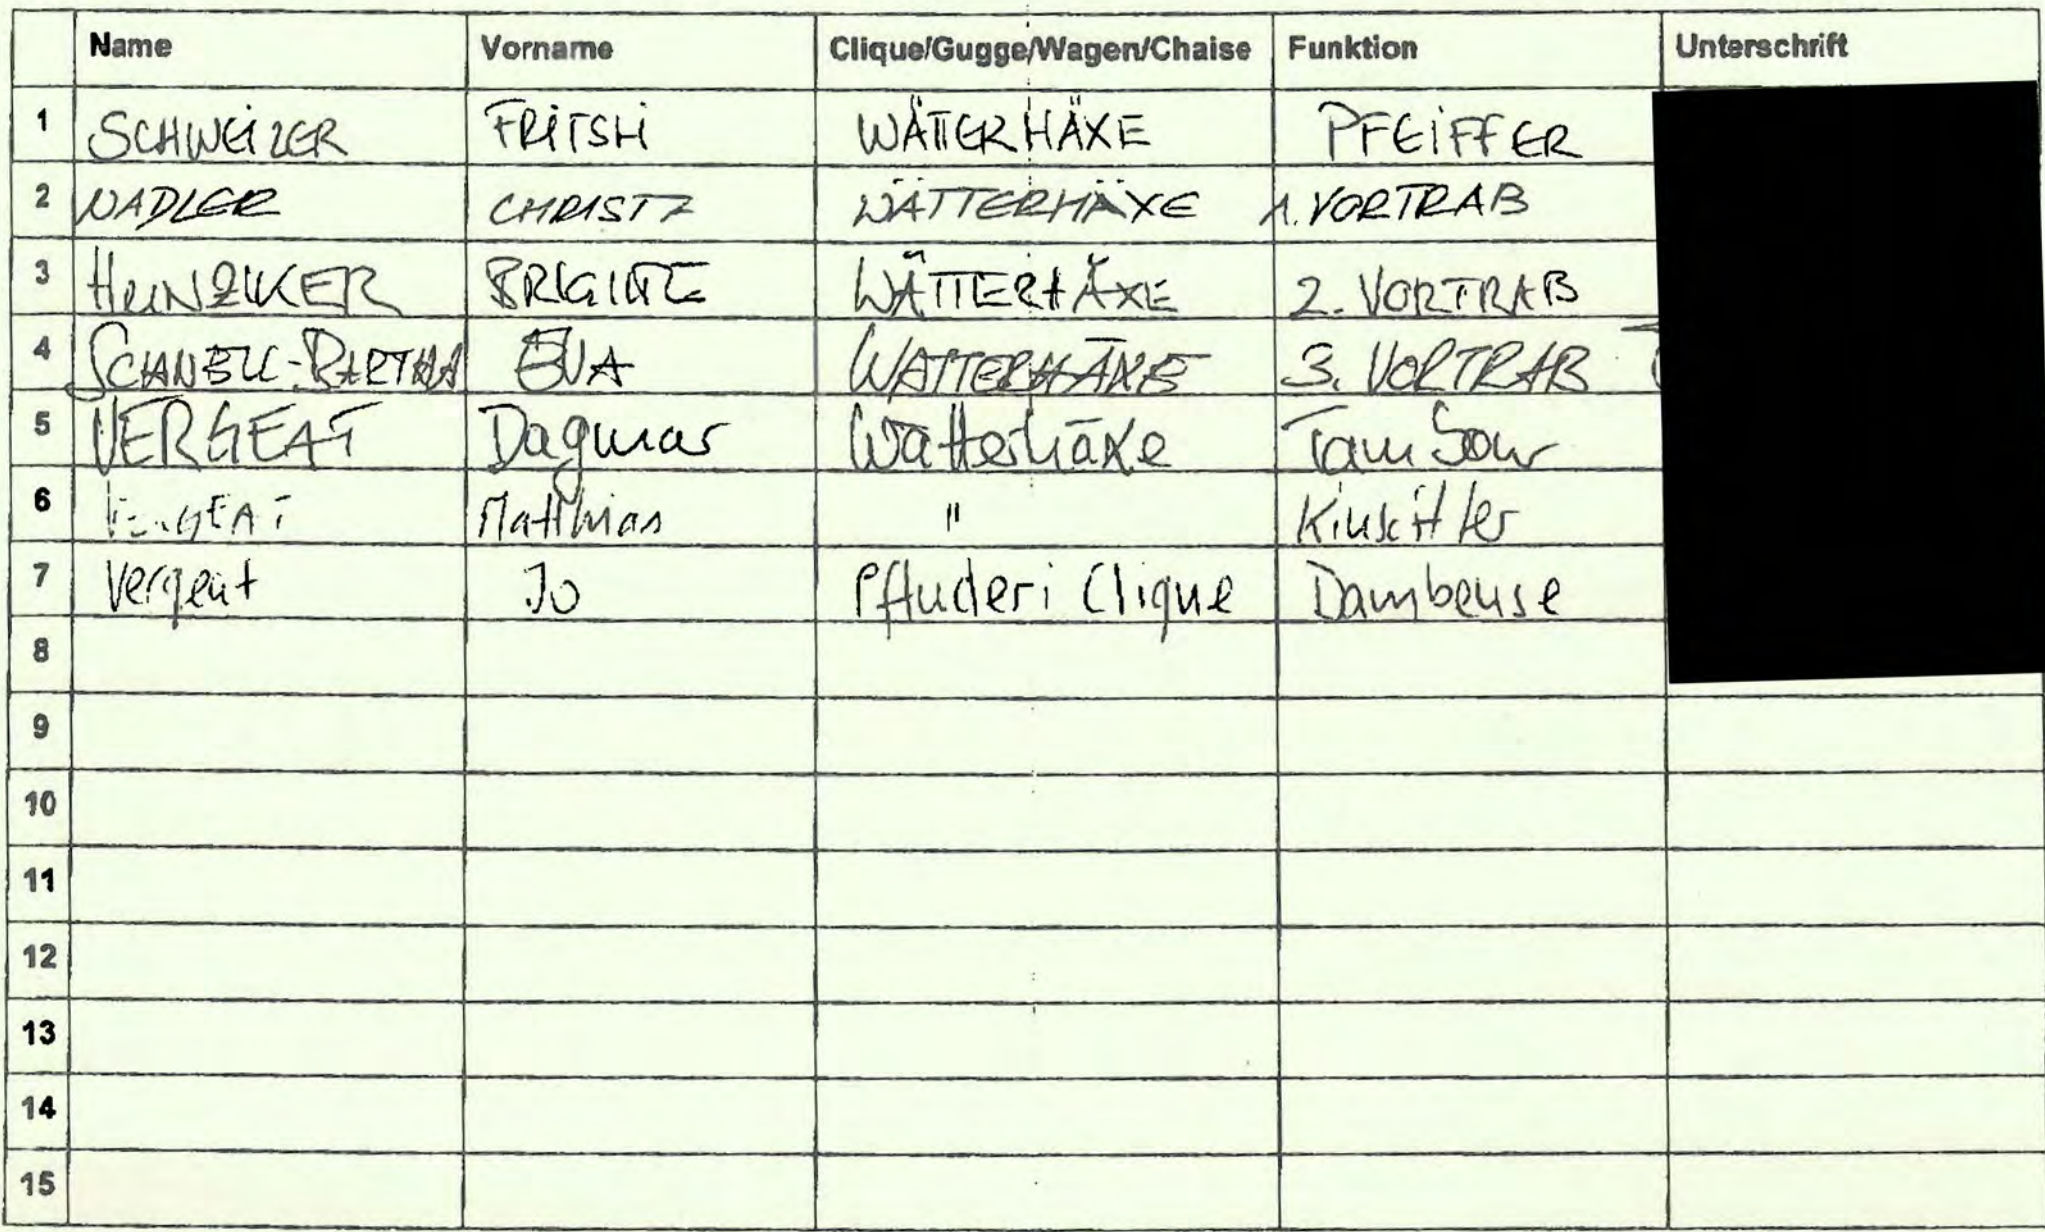 Name Vorname Clique/Gugge/Wagen/Chaise Funktion Unterschrift
1 SCHWEIZER FRITSHI WÄTTERHÄXE PFEIFFER
2 NADLER CHRISTZ WÄTTERHÄXE 1. VORTRAB
3 HUNZIKER BRIGITTE WÄTTERHÄXE 2. VORTRAB
4 EVA WÄTTERHÄXE 3. VORTRAB
5 VERGEAT Dagmar Wätterhäxe Tambour
6 VERGEAT Matthias "
7 Vergeat Jo Pfluderi Clique Dambeuse
8
9
10
11
12
13
14
15